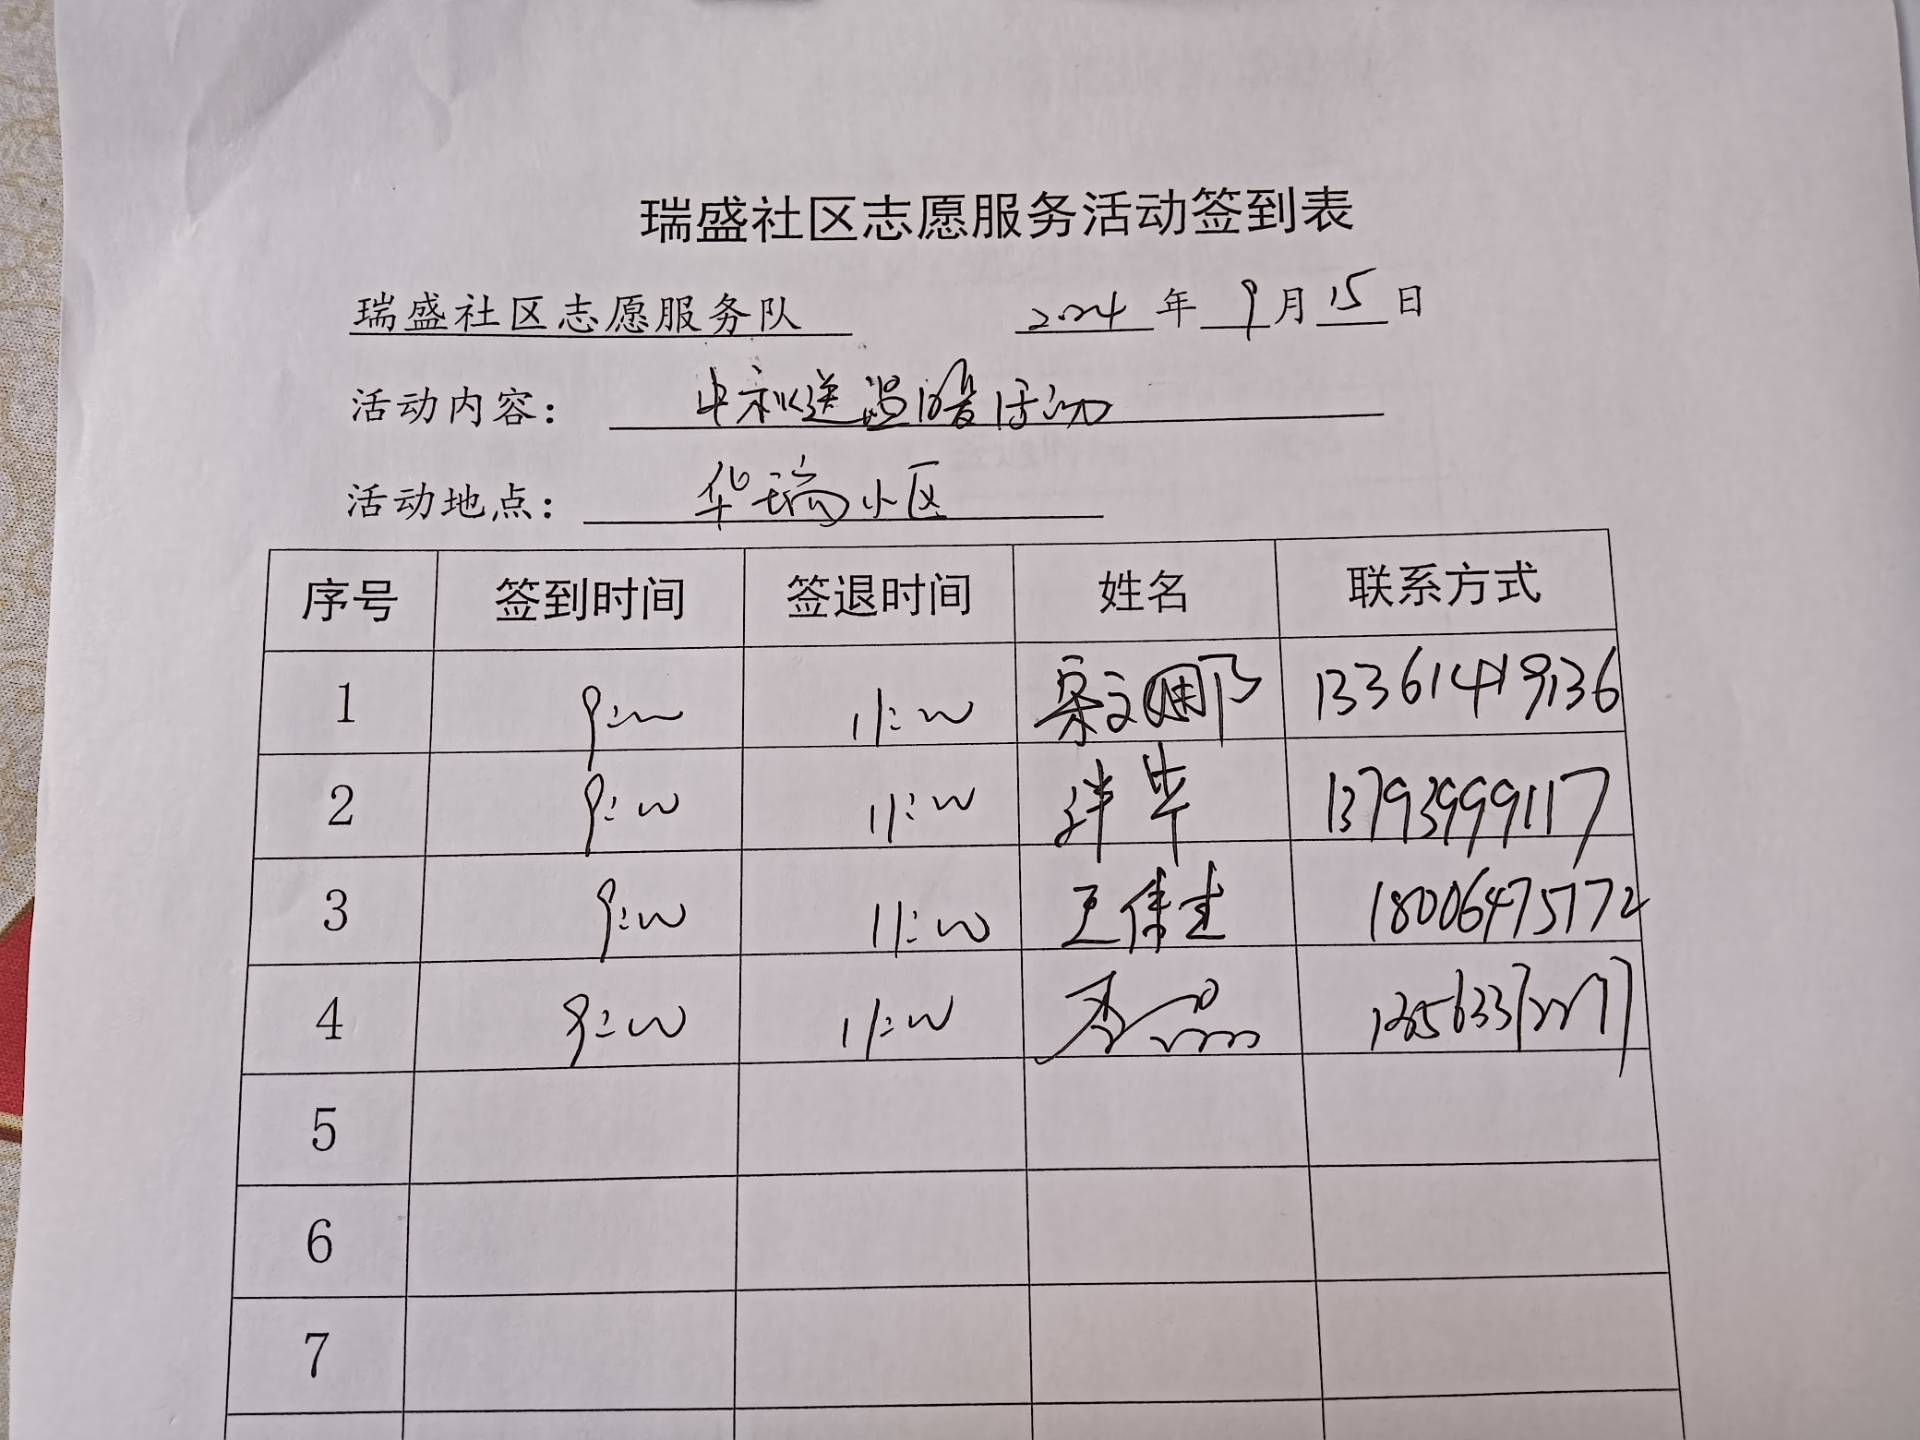 瑞盛社区志愿服务活动签到表
瑞盛社区志愿服务队 2024 年 9 月 15 日
活动内容： 中秋送温暖活动
活动地点： 华瑞小区
序号 签到时间 签退时间 姓名 联系方式
1 9:00 11:00 13361419136
2 9:00 11:00 13793999117
3 9:00 11:00 王伟 18006475772
4 9:00 11:00
5
6
7